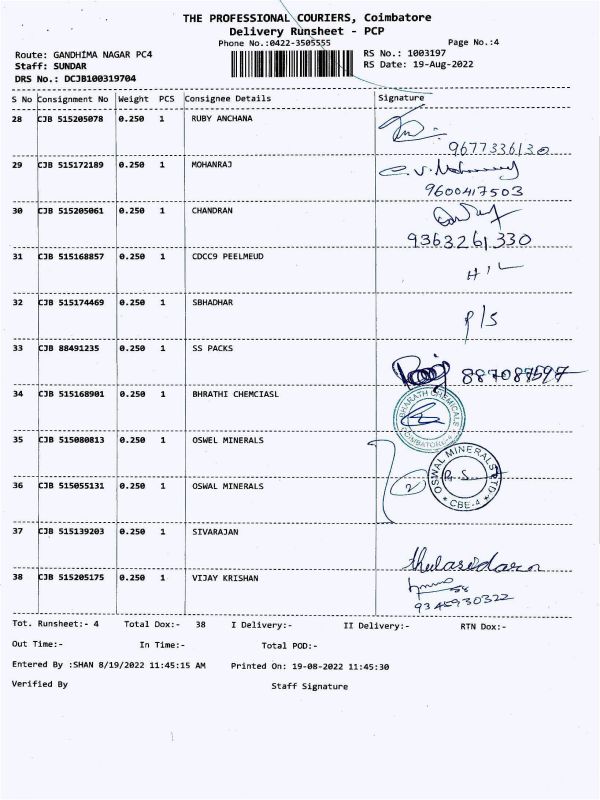 THE PROFESSIONAL COURIERS, Coimbatore
Delivery Runsheet - PCP
Phone No.:0422-3505555
Page No.:4
Route: GANDHIMA NAGAR PC4
RS No.: 1003197
Staff: SUNDAR
RS Date: 19-Aug-2022
DRS No.: DCJB100319704
S No Consignment No Weight PCS Consignee Details Signature
28 CJB 515205078 0.250 1 RUBY ANCHANA
9677336130
29 CJB 515172189 0.250 1 MOHANRAJ
9600417503
30 CJB 515205061 0.250 1 CHANDRAN
9363261330
31 CJB 515168857 0.250 1 CDCC9 PEELMEUD
H/L
32 CJB 515174469 0.250 1 SBHADHAR
P/S
33 CJB 88491235 0.250 1 SS PACKS
34 CJB 515168901 0.250 1 BHRATHI CHEMCIASL
BHARATH CHEMICALS
COIMBATORE-4
35 CJB 515080813 0.250 1 OSWEL MINERALS
OSWAL MINERALS LTD
CBE-4
36 CJB 515055131 0.250 1 OSWAL MINERALS
2
37 CJB 515139203 0.250 1 SIVARAJAN
thulasidaran
38 CJB 515205175 0.250 1 VIJAY KRISHAN
9345930322
Tot. Runsheet:- 4 Total Dox:- 38 I Delivery:- II Delivery:- RTN Dox:-
Out Time:- In Time:- Total POD:-
Entered By :SHAN 8/19/2022 11:45:15 AM Printed On: 19-08-2022 11:45:30
Verified By Staff Signature